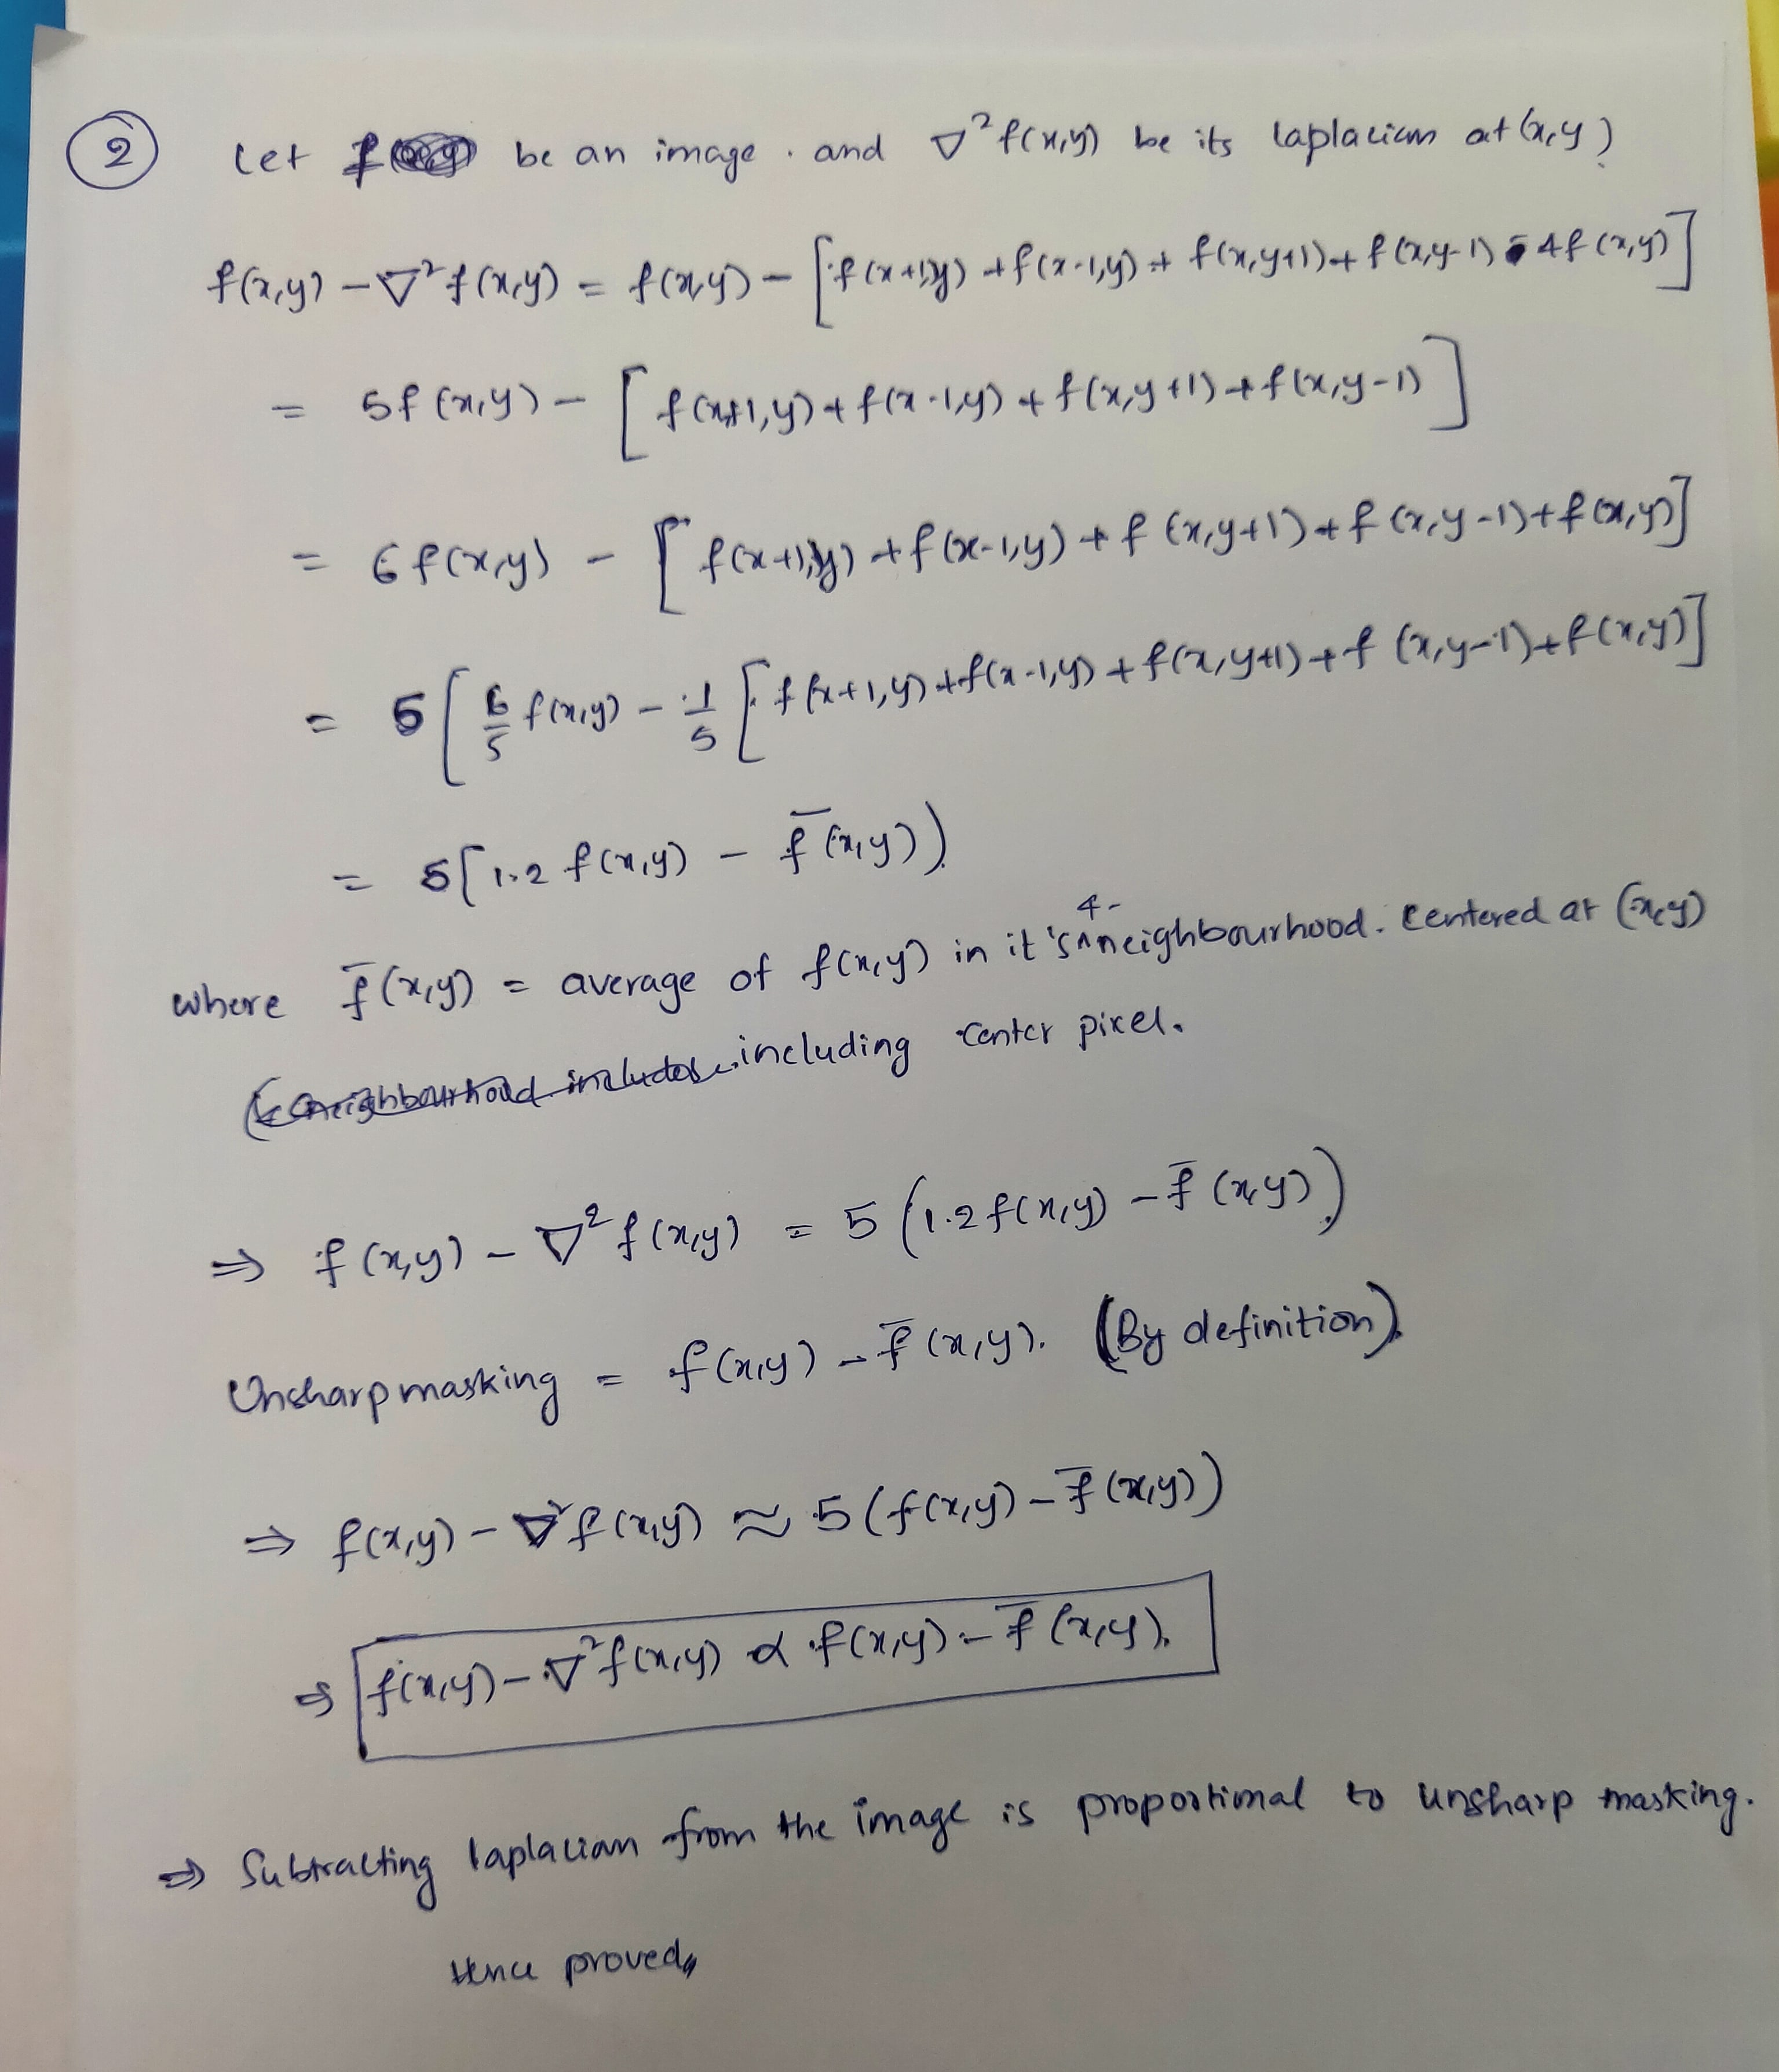 2
Let f be an image. and ∇²f(x,y) be its laplacian at (x,y)
f(x,y) - ∇²f(x,y) = f(x,y) - [f(x+1,y) + f(x-1,y) + f(x,y+1) + f(x,y-1) - 4f(x,y)]
= 5f(x,y) - [f(x+1,y) + f(x-1,y) + f(x,y+1) + f(x,y-1)]
= 6f(x,y) - [f(x+1,y) + f(x-1,y) + f(x,y+1) + f(x,y-1) + f(x,y)]
= 5[6/5 f(x,y) - 1/5 [f(x+1,y) + f(x-1,y) + f(x,y+1) + f(x,y-1) + f(x,y)]
= 5[1.2 f(x,y) - f̅(x,y))
where f̅(x,y) = average of f(x,y) in it's 4-neighbourhood. centered at (x,y)
including center pixel.
⇒ f(x,y) - ∇²f(x,y) = 5(1.2f(x,y) - f̅(x,y))
Unsharp masking = f(x,y) - f̅(x,y). (By definition).
⇒ f(x,y) - ∇²f(x,y) ≈ 5(f(x,y) - f̅(x,y))
⇒ f(x,y) - ∇²f(x,y) ∝ f(x,y) - f̅(x,y).
⇒ Subtracting laplacian from the image is proportional to unsharp masking.
Hence proved